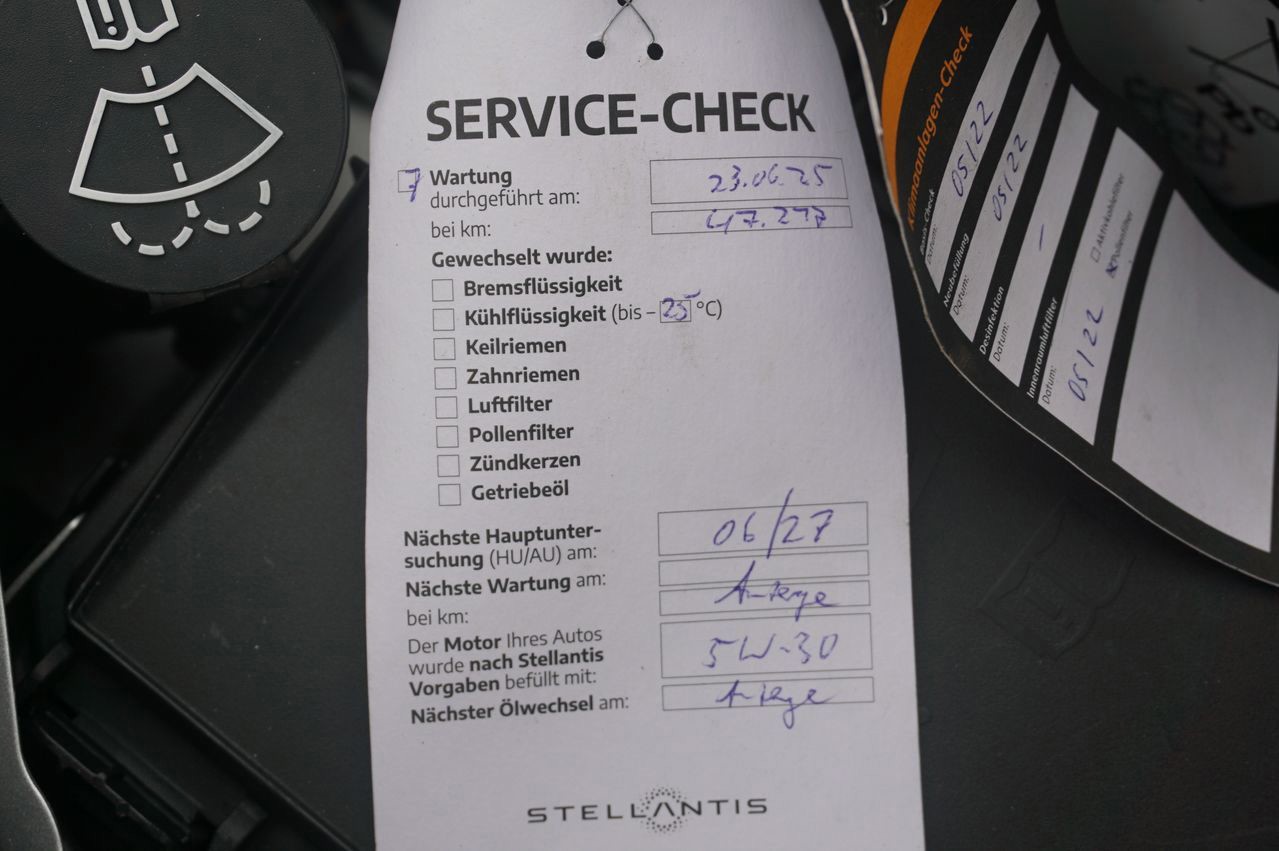 SERVICE-CHECK
Wartung
durchgeführt am: 23.06.25
bei km: 47.217
Gewechselt wurde:
Bremsflüssigkeit
Kühlflüssigkeit (bis – 25 °C)
Keilriemen
Zahnriemen
Luftfilter
Pollenfilter
Zündkerzen
Getriebeöl
Nächste Hauptunter-
suchung (HU/AU) am: 06/27
Nächste Wartung am:
bei km: Anzeige
Der Motor Ihres Autos
wurde nach Stellantis
Vorgaben befüllt mit: 5W-30
Nächster Ölwechsel am: Anzeige
STELLANTIS
Klimaanlagen-Check
Basis-Check
Datum: 05/22
Neubefüllung
Datum: 05/22
Desinfektion
Datum: –
Innenraumluftfilter
Datum: 05/22
Aktivkohlefilter
Pollenfilter